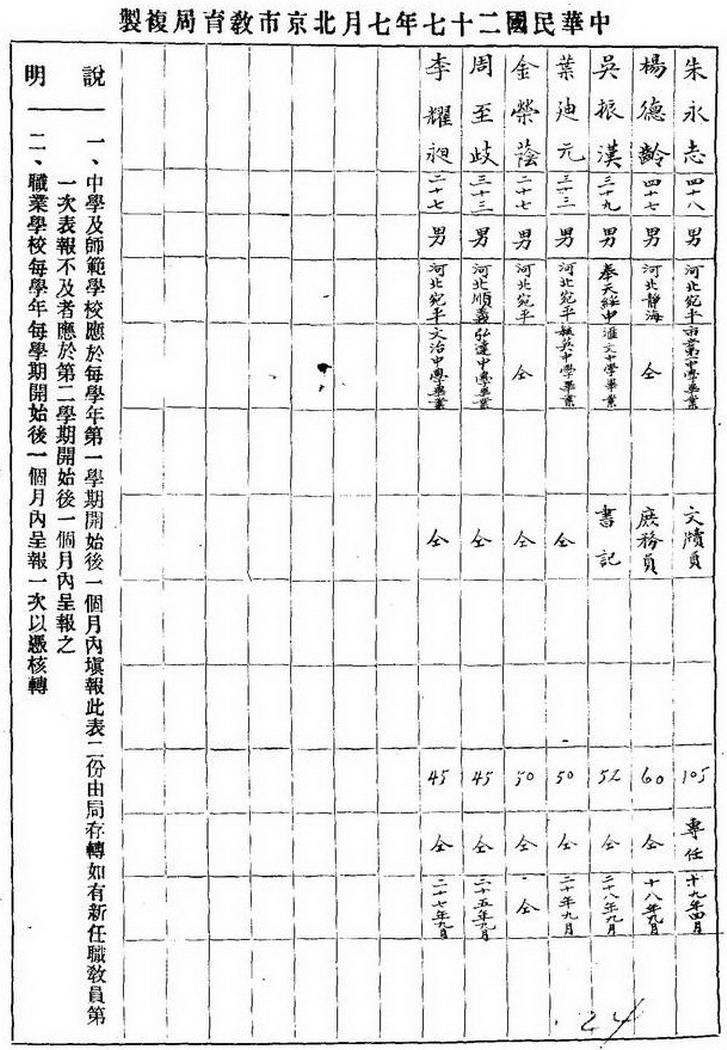 中華民國二十七年七月北京市教育局複製
朱永志 四十八 男 河北宛平 市立第一中學畢業 文牘員 105 專任 十九年四月
楊德齡 四十七 男 河北靜海 仝 庶務員 60 仝 十八年九月
吳振漢 三十九 男 奉天綏中 滙文中學畢業 書記 52 仝 二十八年九月
葉廸元 三十三 男 河北宛平 育英中學畢業 仝 50 仝 二十年九月
金榮蔭 二十七 男 河北宛平 仝 仝 50 仝 仝
周至歧 三十三 男 河北順義 弘達中學畢業 仝 45 仝 二十五年九月
李耀昶 二十七 男 河北宛平 文治中學畢業 仝 45 仝 二十七年九月
說明
一、中學及師範學校應於每學年第一學期開始後一個月內填報此表二份由局存轉如有新任職教員第
一次表報不及者應於第二學期開始後一個月內呈報之
二、職業學校每學年每學期開始後一個月內呈報一次以憑核轉
24